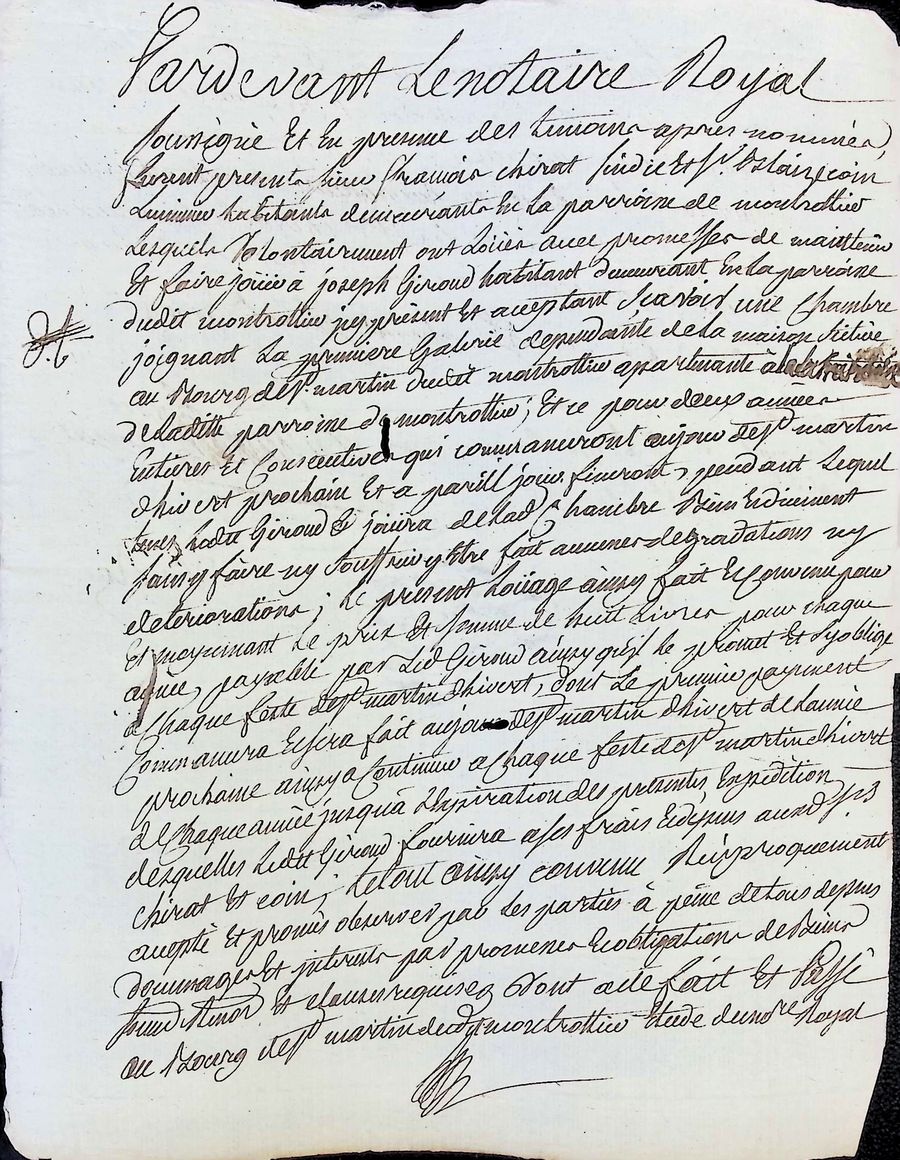 Pardevant Le notaire Royal
sousigné Et En presence des temoins apres nommés,
furent presents sieur François chirat sindic Et Sr. coin
Luminier habitants demeurants En La parroisse de montrottier
Lesquels Volontairement ont Loüés avec promesses de maintenir
Et faire joüir à joseph Giroud habitant demeurant En La parroisse
dudit montrottier jcy présent Et aceptant scavoir une Chambre
joignant La premiere Galerie dependante de la maison sitüée
au Bourg de st martin dudit montrottier apartenante à
de Ladille parroisse de montrottier; Et ce pour deux années
Entieres Et Consecutives qui commanceront aujour de st martin
dhivert prochain Et a pareil jour finiront, pendant Lequel
tems Ledit Giroud joüira de lad. Chambre Bien Endüement
sans y faire ny souffrir y Etre fait aucunes degradations ny
deteriorations; Le present Loüage ainsy fait Et Convenu pour
Et moyennant Le prix Et somme de huit Livres pour chaque
année, payable par Led Giroud ainsy qu'jl le promet Et s'y oblige
a Chaque feste de st martin dhivert, dont Le premier payement
Commancera Et sera fait aujour de st martin dhivert de Lannée
prochaine ainsy a Continuer a Chaque feste de st martin dhivert
de Chaque année jusqu'à L'expiration des presentes, Expédition
desquelles Ledit Giroud fournira a ses frais Et dépens auxd. srs
chirat Et coin; Le tout ainsy convenu Reciproquement
acepté Et promis observer par Les parties à peine de tous depens
dommages Et jnterets par promesses Et obligations de Biens
Et clauses requises Dont acte fait Et Passé
au Bourg de st martin dudt montrottier Etude du nore Royal